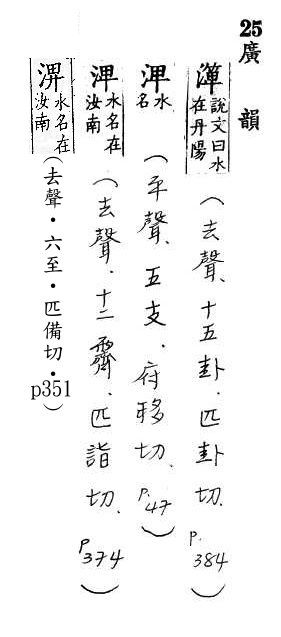 25廣韻
說文曰水在丹陽（去聲、十五卦、匹卦切、P.384）
渒水名（平聲、五支、府移切、P.47）
渒水名在汝南（去聲、十二霽、匹詣切、P374）
淠水名在汝南（去聲·六至·匹備切·p351）